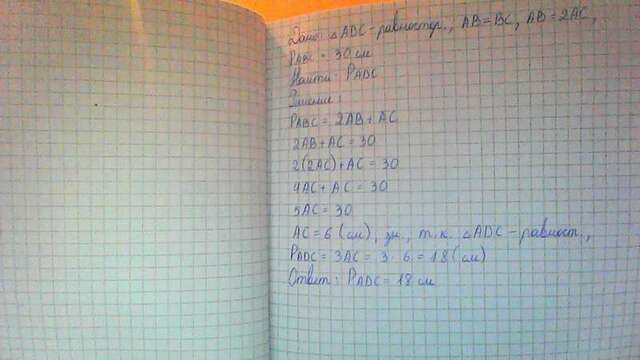 Дано: △ABC - равностор., AB = BC, AB = 2AC,
PABC = 30 см
Найти: PADC
Решение:
PABC = 2AB + AC
2AB + AC = 30
2(2AC) + AC = 30
4AC + AC = 30
5AC = 30
AC = 6 (см), зн., т.к. △ADC - равност.,
PADC = 3AC = 3 · 6 = 18 (см)
Ответ: PADC = 18 см